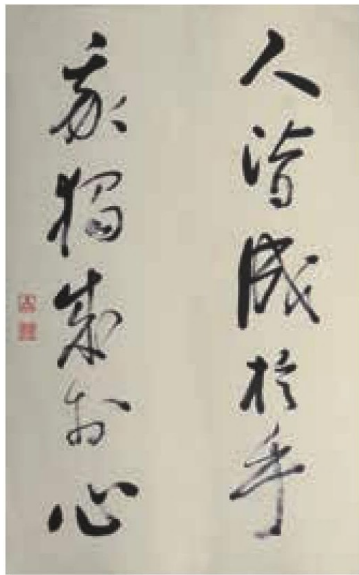 人皆成於手
我獨成於心